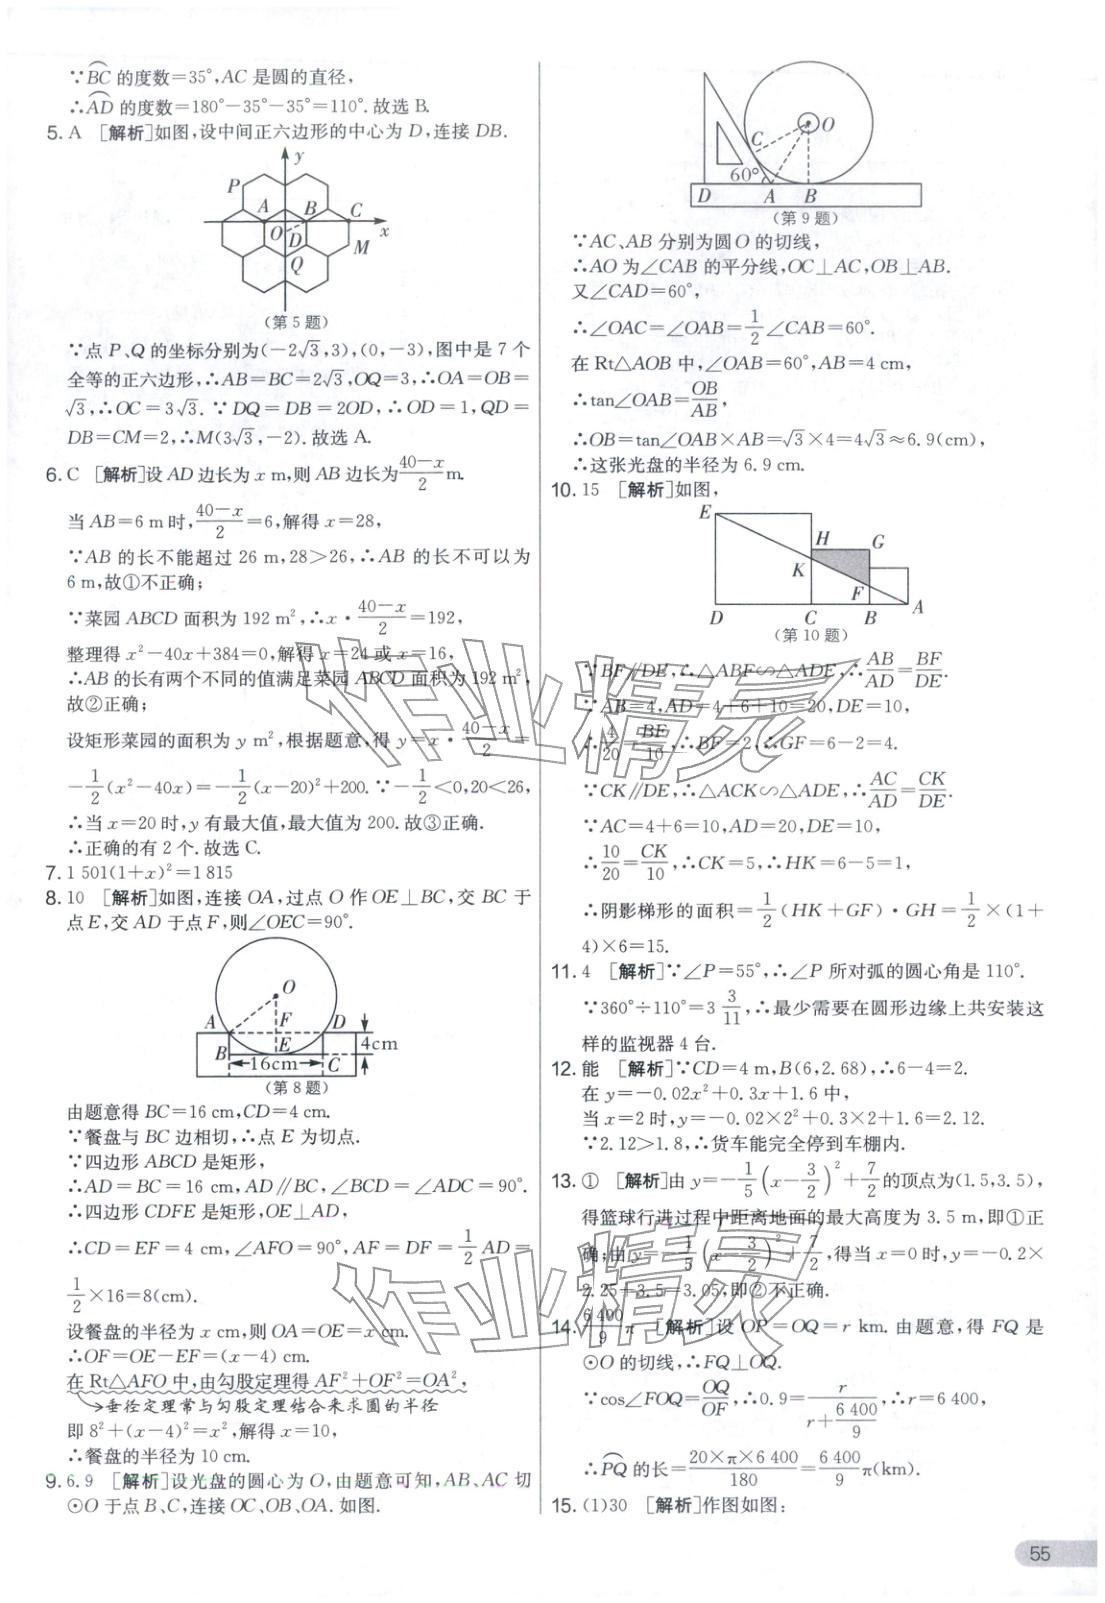 ∵BC⌒的度数=35°,AC 是圆的直径,
∴AD⌒的度数=180°-35°-35°=110°.故选 B.
5. A [解析]如图,设中间正六边形的中心为 D,连接 DB.
y
P
A
B
C
O
D
x
M
Q
(第 5 题)
∵点 P、Q 的坐标分别为(-2√3,3),(0,-3),图中是 7 个
全等的正六边形,∴AB=BC=2√3,OQ=3,∴OA=OB=
√3,∴OC=3√3.∵DQ=DB=2OD,∴OD=1,QD=
DB=CM=2,∴M(3√3,-2).故选 A.
6. C [解析]设 AD 边长为 x m,则 AB 边长为(40-x)/2 m.
当 AB=6 m 时,(40-x)/2=6,解得 x=28,
∵AB 的长不能超过 26 m,28>26,∴AB 的长不可以为
6 m,故①不正确;
∵菜园 ABCD 面积为 192 m²,∴x·(40-x)/2=192,
整理得 x²-40x+384=0,解得 x=24 或 x=16,
∴AB 的长有两个不同的值满足菜园 ABCD 面积为 192 m²,
故②正确;
设矩形菜园的面积为 y m²,根据题意,得 y=x·(40-x)/2=
-1/2(x²-40x)=-1/2(x-20)²+200.∵-1/2<0,20<26,
∴当 x=20 时,y 有最大值,最大值为 200.故③正确.
∴正确的有 2 个.故选 C.
7. 1 501(1+x)²=1 815
8. 10 [解析]如图,连接 OA,过点 O 作 OE⊥BC,交 BC 于
点 E,交 AD 于点 F,则∠OEC=90°.
O
A
F
D
B
E
4cm
16cm
C
(第 8 题)
由题意得 BC=16 cm,CD=4 cm.
∵餐盘与 BC 边相切,∴点 E 为切点.
∵四边形 ABCD 是矩形,
∴AD=BC=16 cm,AD∥BC,∠BCD=∠ADC=90°.
∴四边形 CDFE 是矩形,OE⊥AD,
∴CD=EF=4 cm,∠AFO=90°,AF=DF=1/2 AD=
1/2×16=8(cm).
设餐盘的半径为 x cm,则 OA=OE=x cm.
∴OF=OE-EF=(x-4) cm.
在 Rt△AFO 中,由勾股定理得 AF²+OF²=OA²,
垂径定理常与勾股定理结合来求圆的半径
即 8²+(x-4)²=x²,解得 x=10,
∴餐盘的半径为 10 cm.
9. 6.9 [解析]设光盘的圆心为 O,由题意可知,AB、AC 切
⊙O 于点 B、C,连接 OC、OB、OA.如图.
O
C
60°
D
A
B
(第 9 题)
∵AC、AB 分别为圆 O 的切线,
∴AO 为∠CAB 的平分线,OC⊥AC,OB⊥AB.
又∠CAD=60°,
∴∠OAC=∠OAB=1/2∠CAB=60°.
在 Rt△AOB 中,∠OAB=60°,AB=4 cm,
∴tan∠OAB=OB/AB,
∴OB=tan∠OAB×AB=√3×4=4√3≈6.9(cm),
∴这张光盘的半径为 6.9 cm.
10. 15 [解析]如图,
E
H
G
K
F
D
C
B
A
(第 10 题)
∵BF∥DE,∴△ABF∽△ADE,∴AB/AD=BF/DE.
∵AB=4,AD=4+6+10=20,DE=10,
∴4/20=BF/10,∴BF=2,∴GF=6-2=4.
∵CK∥DE,∴△ACK∽△ADE,∴AC/AD=CK/DE.
∵AC=4+6=10,AD=20,DE=10,
∴10/20=CK/10,∴CK=5,∴HK=6-5=1,
∴阴影梯形的面积=1/2(HK+GF)·GH=1/2×(1+
4)×6=15.
11. 4 [解析]∵∠P=55°,∴∠P 所对弧的圆心角是 110°.
∵360°÷110°=3 3/11,∴最少需要在圆形边缘上共安装这
样的监视器 4 台.
12. 能 [解析]∵CD=4 m,B(6,2.68),∴6-4=2.
在 y=-0.02x²+0.3x+1.6 中,
当 x=2 时,y=-0.02×2²+0.3×2+1.6=2.12.
∵2.12>1.8,∴货车能完全停到车棚内.
13. ① [解析]由 y=-1/5(x-3/2)²+7/2的顶点为(1.5,3.5),
得篮球行进过程中距离地面的最大高度为 3.5 m,即①正
确;由 y=-1/5(x-3/2)²+7/2,得当 x=0 时,y=-0.2×
2.25+3.5=3.05,即②不正确.
14. 6 400/9 π [解析]设 OP=OQ=r km.由题意,得 FQ 是
⊙O 的切线,∴FQ⊥OQ.
∵cos∠FOQ=OQ/OF,∴0.9=r/(r+6 400/9),∴r=6 400,
∴PQ⌒的长=(20×π×6 400)/180=6 400/9 π(km).
15. (1)30 [解析]作图如图:
55
作业精灵
作业精灵